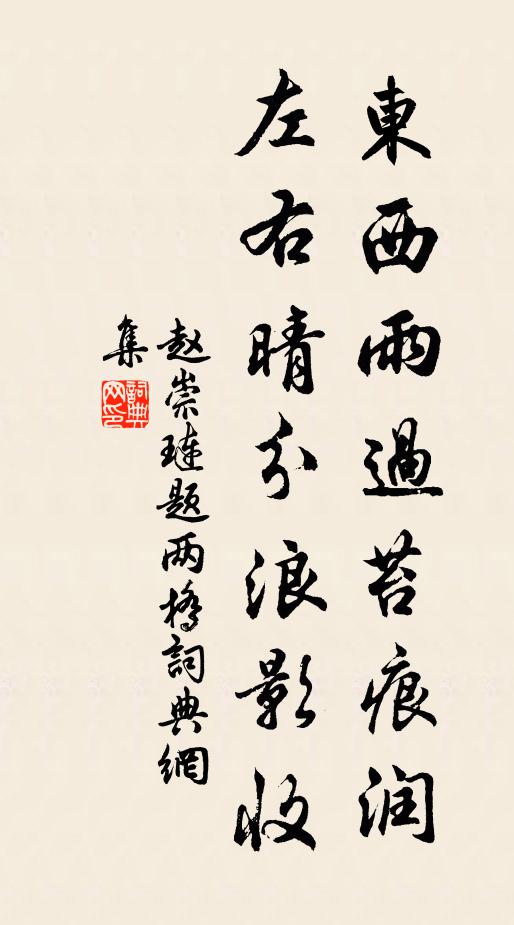 東西雨過苔痕润
左右晴分浪影收
赵崇璉题两橋詞典網
集
詞典
网印